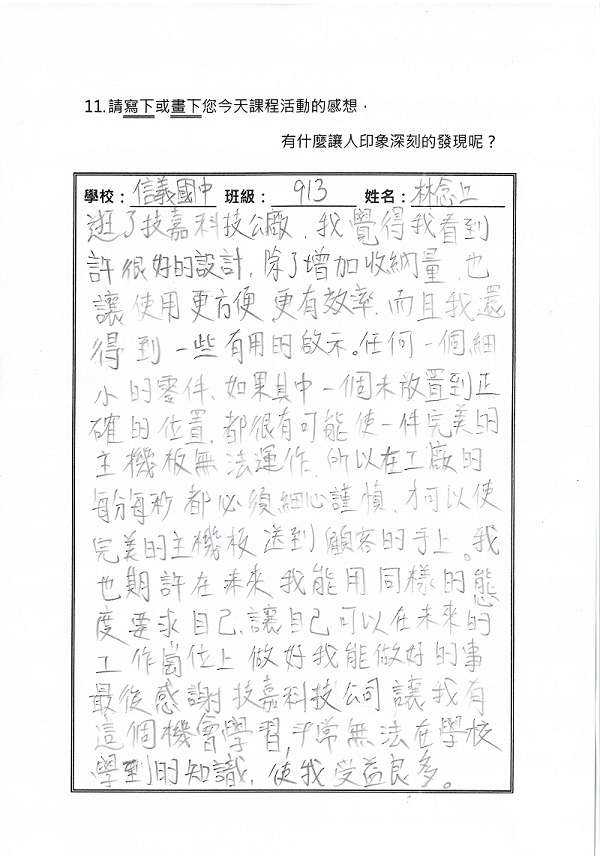 11.請寫下或畫下您今天課程活動的感想，
有什麼讓人印象深刻的發現呢？
學校：信義國中 班級：913 姓名：林念
逛了技嘉科技公廠，我覺得我看到
許很好的設計，除了增加收納量，也
讓使用更方便，更有效率，而且我還
得到一些有用的啟示。任何一個細
小的零件，如果其中一個未放置到正
確的位置，都很有可能使一件完美的
主機板無法運作，所以在工廠的
每分每秒都必須細心謹慎，才可以使
完美的主機板送到顧客的手上。我
也期許在未來我能用同樣的態
度要求自己，讓自己可以在未來的
工作崗位上做好我能做好的事
最後感謝技嘉科技公司讓我有
這個機會學習，平常無法在學校
學到的知識，使我受益良多。